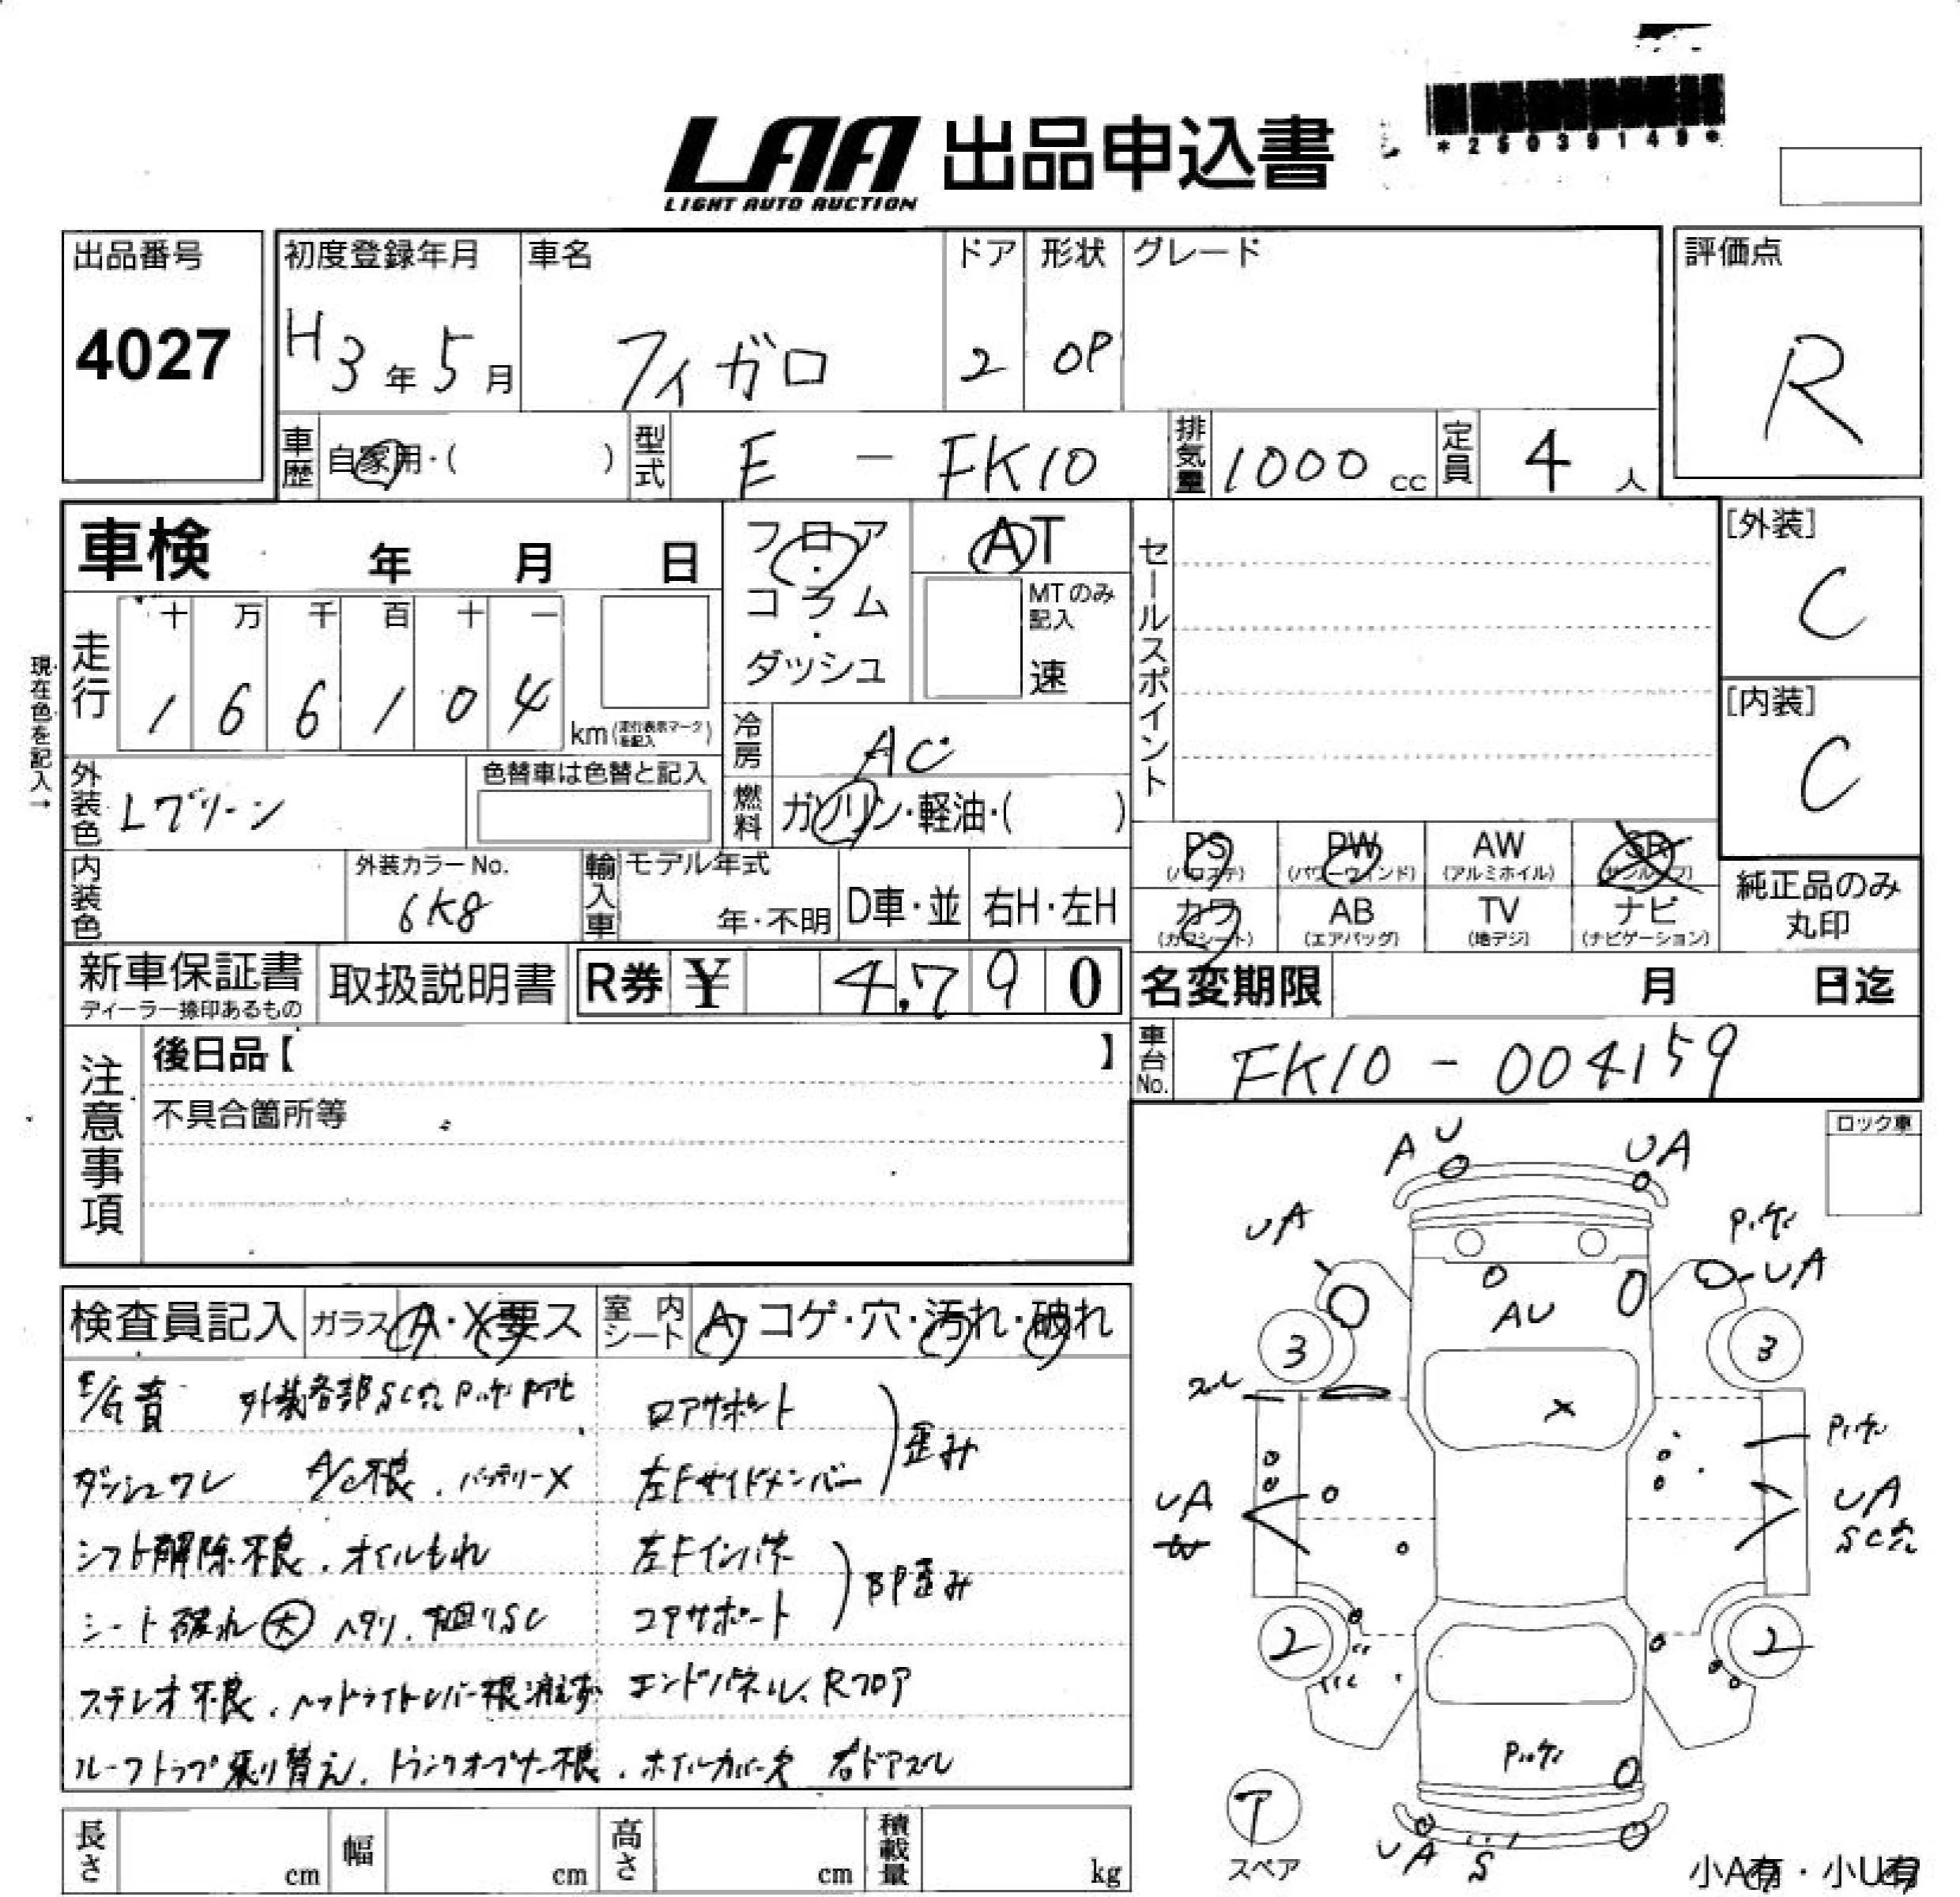 *25039149*
LAA 出品申込書
LIGHT AUTO AUCTION
出品番号
4027
初度登録年月
H3年5月
車名
フィガロ
ドア
2
形状
OP
グレード
評価点
R
車歴
自家用・( )
型式
E - FK10
排気量
1000 cc
定員
4 人
車検 年 月 日
フロア・コラム・ダッシュ
AT
MTのみ記入
速
セールスポイント
[外装]
C
[内装]
C
現在色を記入→
走行
十 万 千 百 十 一
1 6 6 1 0 4
km(走行表示マークを記入)
冷房
AC
燃料
ガソリン・軽油・( )
外装色
Lグリーン
色替車は色替と記入
内装色
外装カラーNo.
6K8
輸入車
モデル年式
年・不明
D車・並
右H・左H
PS
(パワステ)
PW
(パワーウインド)
AW
(アルミホイル)
SR
(サンルーフ)
カワ
(カワシート)
AB
(エアバッグ)
TV
(地デジ)
ナビ
(ナビゲーション)
純正品のみ
丸印
新車保証書
ディーラー捺印あるもの
取扱説明書
R券 ¥ 4,790
名変期限 月 日迄
車台No.
FK10 - 004159
注意事項
後日品【 】
不具合箇所等
ロック車
検査員記入
ガラス A・X要ス
室内シート A・コゲ・穴・汚れ・破れ
E/G音 外装各部SC穴
ダッシュワレ A/C不良、バッテリーX
シフト解除不良、オイルもれ
シート破れ大 ヘタリ、
ステレオ不良、
ルーフトップ張り替え、トランクオープナー不良、ホイルカバー欠 右ドアズレ
ロアサポート
左Fサイドメンバー
歪み
左Fインパネ
コアサポート
BP歪み
エンドパネル、Rフロア
A U
UA
UA
UA
AU
3
3
X
ズレ
UA
W
UA
SC穴
2
2
ア
スペア
UA
S
小A有・小U有
長さ cm
幅 cm
高さ cm
積載量 kg